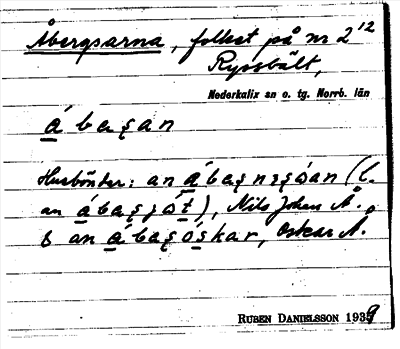 Åbergsarna, folket på nr 2¹²
Ryssbält,
Nederkalix sn o. tg. Norrb. län
ábaşan
Husbönder: an ábaş (l.
an ), Nils Johan Å.
& an ábaşóskar, Oskar Å.
RUBEN DANIELSSON 1939